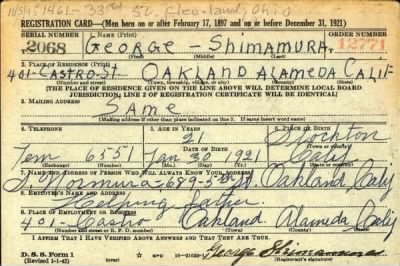 1461- 53rd St, Cleveland, Ohio
REGISTRATION CARD—(Men born on or after February 17, 1897 and on or before December 31, 1921)
SERIAL NUMBER 1. NAME (Print) ORDER NUMBER
2068 GEORGE - SHIMAMURA 12771
(First) (Middle) (Last)
2. PLACE OF RESIDENCE (Print)
401-CASTRO-ST OAKLAND ALAMEDA CALIF
(Number and street) (Town, township, village, or city) (County) (State)
[THE PLACE OF RESIDENCE GIVEN ON THE LINE ABOVE WILL DETERMINE LOCAL BOARD
JURISDICTION; LINE 2 OF REGISTRATION CERTIFICATE WILL BE IDENTICAL]
3. MAILING ADDRESS
SAME
[Mailing address if other than place indicated on line 2. If same insert word same]
4. TELEPHONE 5. AGE IN YEARS 6. PLACE OF BIRTH
21 Stockton
DATE OF BIRTH
Tem 6551 Jan 30 1921 Calif
(Exchange) (Number) (Mo.) (Day) (Yr.) (State or country)
7. NAME AND ADDRESS OF PERSON WHO WILL ALWAYS KNOW YOUR ADDRESS
689-5th St. Oakland Calif
8. EMPLOYER'S NAME AND ADDRESS
Helping Father
9. PLACE OF EMPLOYMENT OR BUSINESS
401 - Castro Oakland, Alameda Calif
(Number and street or R. F. D. number) (Town) (County) (State)
I AFFIRM THAT I HAVE VERIFIED ABOVE ANSWERS AND THAT THEY ARE TRUE.
D. S. S. Form 1
(Revised 1-1-42) (over) George Shimamura